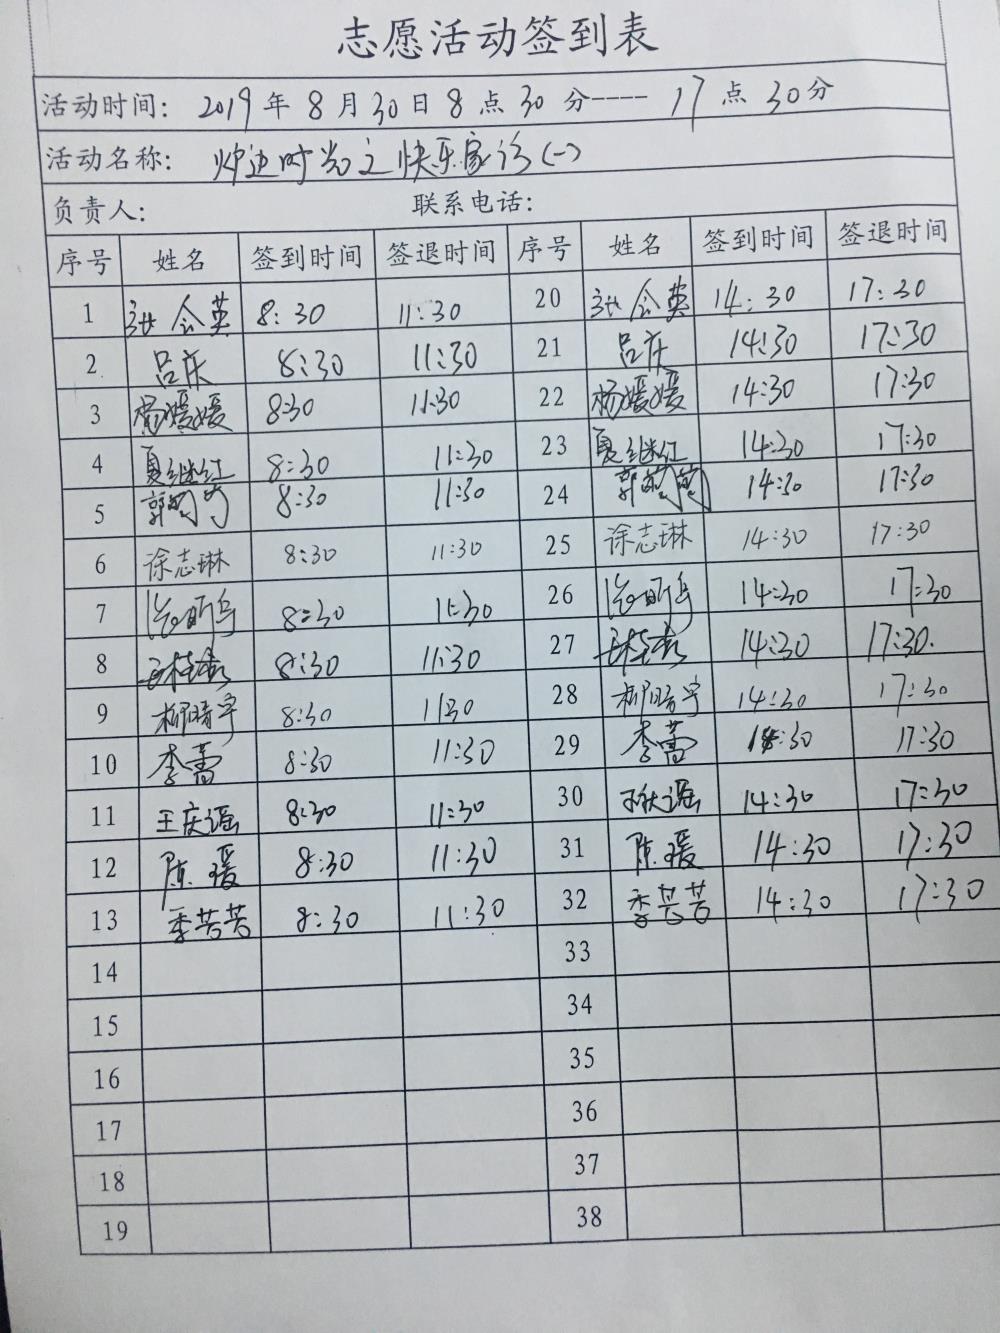 志愿活动签到表
活动时间: 2019年8月30日8点30分----17点30分
活动名称: 炉边时光之快乐家访(一)
负责人: 联系电话:
序号 姓名 签到时间 签退时间 序号 姓名 签到时间 签退时间
1 张会英 8:30 11:30 20 张会英 14:30 17:30
2 吕庆 8:30 11:30 21 吕庆 14:30 17:30
3 杨媛媛 8:30 11:30 22 杨媛媛 14:30 17:30
4 夏继红 8:30 11:30 23 夏继红 14:30 17:30
5 郭 8:30 11:30 24 郭 14:30 17:30
6 徐志琳 8:30 11:30 25 徐志琳 14:30 17:30
7 8:30 11:30 26 14:30 17:30
8 8:30 11:30 27 14:30 17:30.
9 柳晴宇 8:30 11:30 28 柳晴宇 14:30 17:30
10 李蕾 8:30 11:30 29 李蕾 14:30 17:30
11 王庆谣 8:30 11:30 30 14:30 17:30
12 陈瑷 8:30 11:30 31 陈瑷 14:30 17:30
13 季芸芸 8:30 11:30 32 季芸芸 14:30 17:30
14 33
15 34
16 35
17 36
18 37
19 38